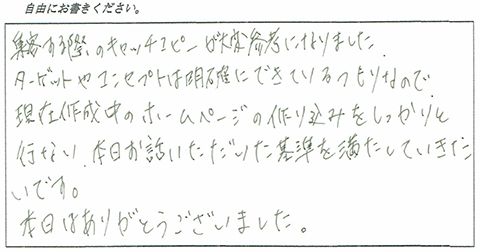 自由にお書きください。
集客する際のキャッチコピーが大変参考になりました.
ターゲットやコンセプトは明確にできているつもりなので
現在作成中のホームページの作り込みをしっかりと
行ない、本日お話いただいた基準を満たしていきた
いです。
本日はありがとうございました。